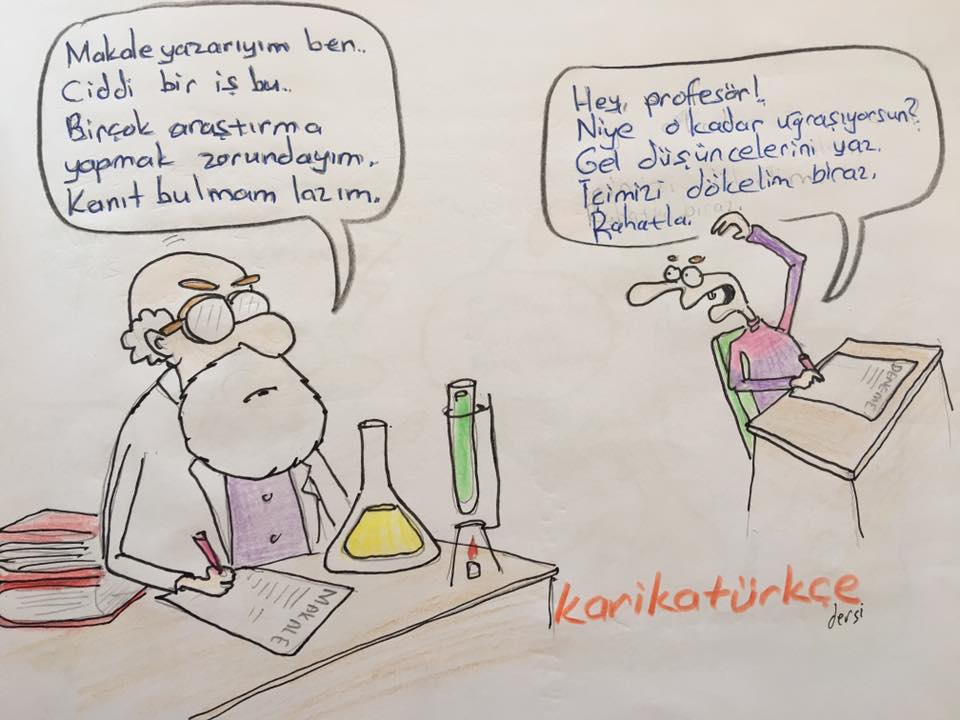 Makale yazarıyım ben..
Ciddi bir iş bu..
Birçok araştırma
yapmak zorundayım.
Kanıt bulmam lazım.
Hey, profesör!
Niye o kadar uğraşıyorsun?
Gel düşüncelerini yaz.
İçimizi dökelim biraz.
Rahatla.
DENEME
MAKALE
karikatürkçe
dersi